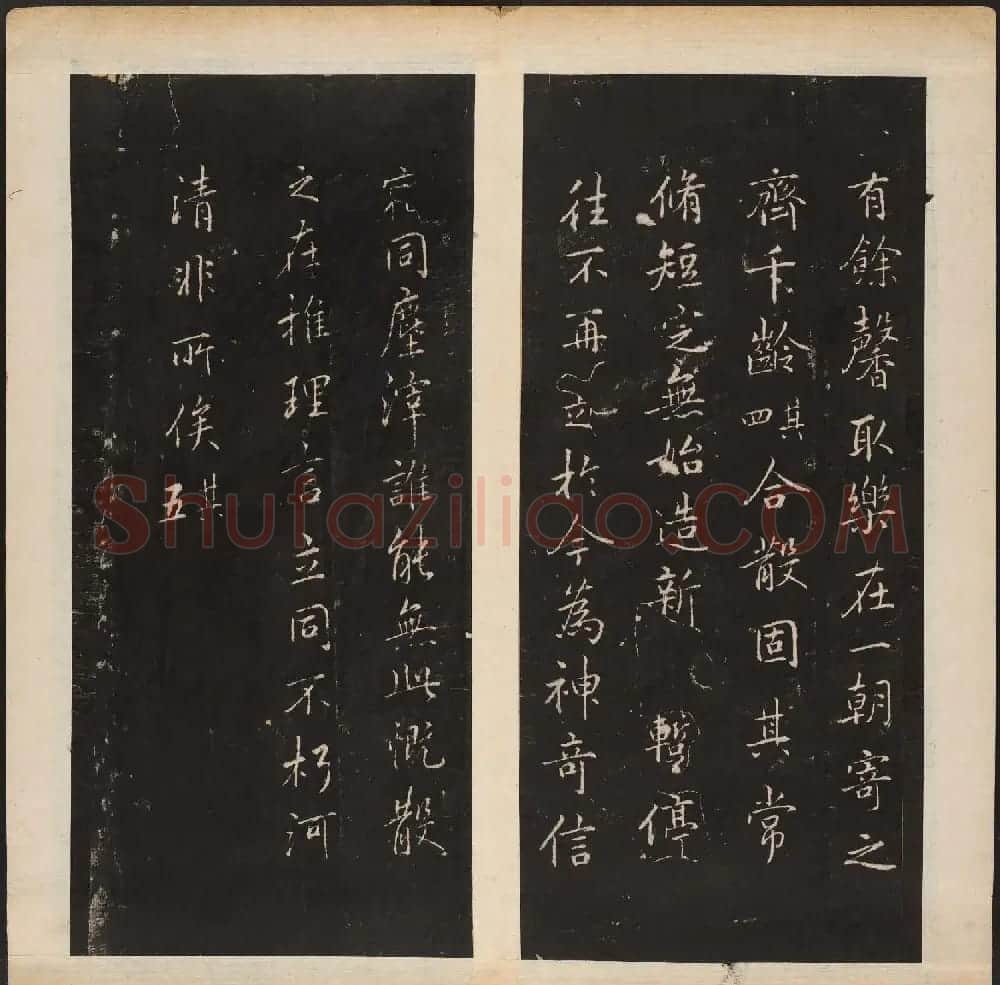 有餘馨取樂在一朝寄之
齊千齡其四合散固其常
脩短定無始造新暫停
往不再起於今為神奇信
宿同塵滓誰能無此慨散
之在推理言立同不朽河
清非所俟其五
Shufaziliao.COM